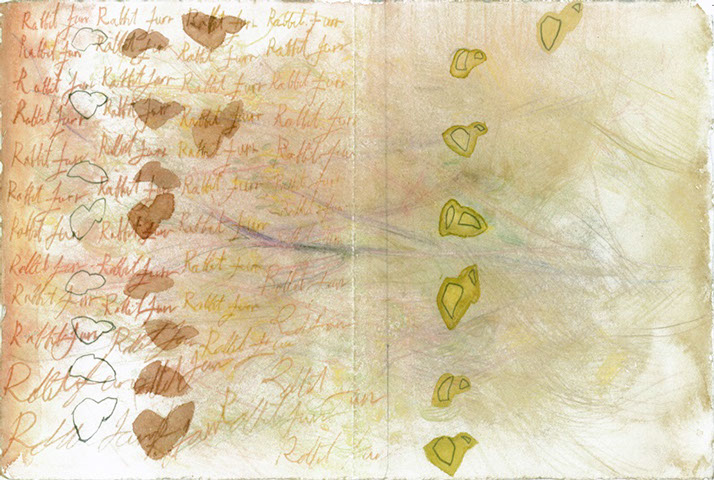 Rabbit furr Rabbit furr Rabbit furr Rabbit furr
Rabbit furr Rabbit furr Rabbit furr Rabbit furr
Rabbit furr Rabbit furr Rabbit furr Rabbit furr
Rabbit furr Rabbit furr Rabbit furr Rabbit furr
Rabbit furr Rabbit furr Rabbit furr Rabbit furr
Rabbit furr Rabbit furr Rabbit furr Rabbit furr
Rabbit furr Rabbit furr Rabbit furr
Rabbit furr Rabbit furr Rabbit furr Rabbit furr
Rabbit furr Rabbit furr Rabbit furr
Rabbit furr Rabbit furr Rabbit furr
Rabbit furr
Rabbit furr
Rabbit fur